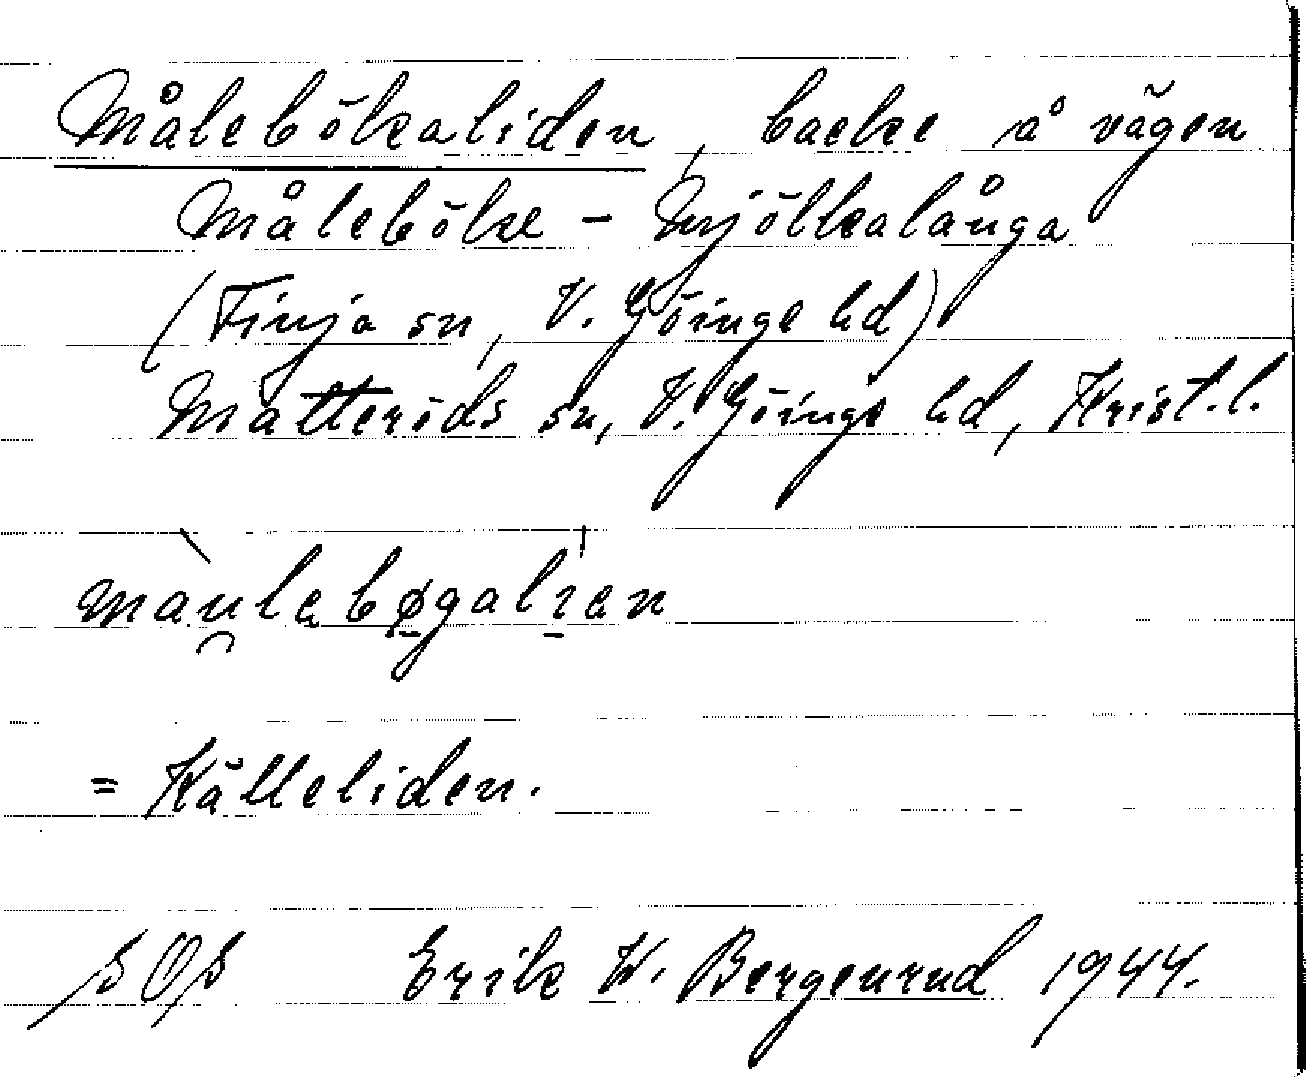 Målebökaliden, backe å vägen
Måleböke - Mjölkalånga
(Finja sn, V. Göinge hd)
Matteröds sn, V. Göinge hd, Krist.l.
màu̯lebø̱galı̱en
= Källeliden.
Erik W. Bergenrud 1944.